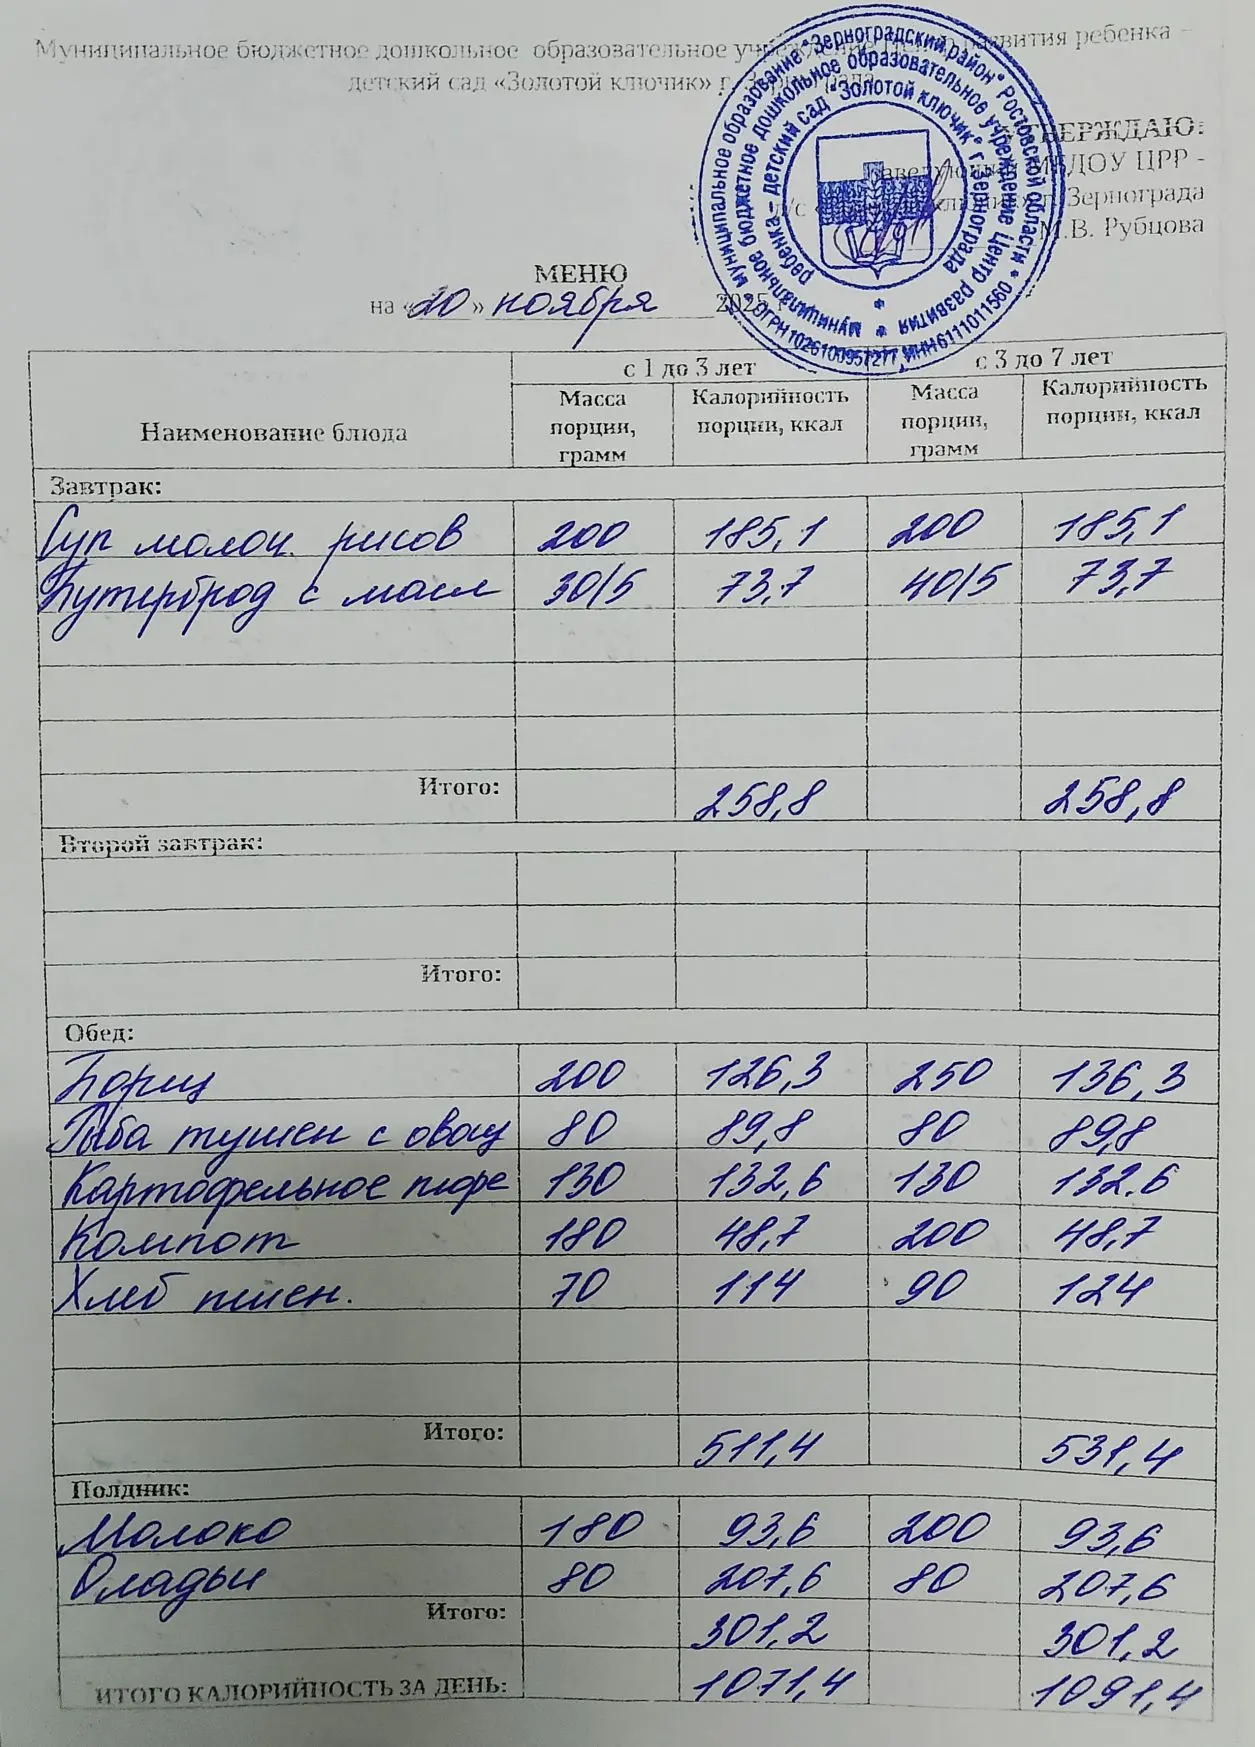 Муниципальное бюджетное дошкольное образовательное учреждение Центр развития ребенка –
детский сад «Золотой ключик» г. Зернограда
УТВЕРЖДАЮ:
Заведующая МБДОУ ЦРР -
д/с ключик» г. Зернограда
М.В. Рубцова
муниципальное образование "Зерноградский район" Ростовской области * ОГРН 1026100957277 ИНН 6111011560 *
муниципальное бюджетное дошкольное образовательное учреждение Центр развития
ребенка - детский сад "Золотой ключик" г. Зернограда
МЕНЮ
на «20» ноября 2025 г
Наименование блюда с 1 до 3 лет с 3 до 7 лет
Масса порции, грамм Калорийность порции, ккал Масса порции, грамм Калорийность порции, ккал
Завтрак:
Суп молоч. рисов 200 185,1 200 185,1
Бутерброд с масл 30/5 73,7 40/5 73,7
Итого: 258,8 258,8
Второй завтрак:
Итого:
Обед:
Борщ 200 126,3 250 136,3
Рыба тушен с овощ 80 89,8 80 89,8
Картофельное пюре 130 132,6 130 132.6
Компот 180 48,7 200 48,7
Хлеб пшен. 70 114 90 124
Итого: 511,4 531,4
Полдник:
Молоко 180 93,6 200 93,6
Оладьи 80 207,6 80 207,6
Итого: 301,2 301,2
ИТОГО КАЛОРИЙНОСТЬ ЗА ДЕНЬ: 1071,4 1091,4